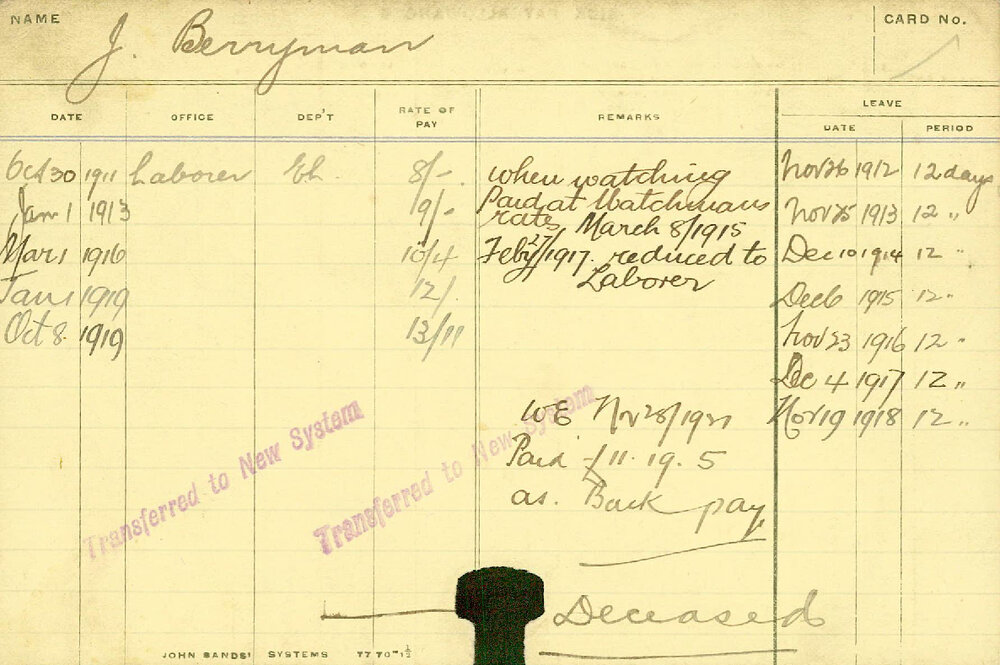 NAME J. Berryman CARD No.
LEAVE
DATE OFFICE DEP'T RATE OF PAY REMARKS DATE PERIOD
Oct 30 1911 Laborer Eh. 8/-. when watching Nov 26 1912 12 days
Jan 1 1913 9/- Paid at Watchmans Nov 25 1913 12 "
rates March 8/1915
Mar 1 1916 10/4 Feby 27/1917. reduced to Dec 10 1914 12 "
Laborer
Jan 1 1919 12/. Dec 6 1915 12 "
Oct 8. 1919 13/11 Nov 23 1916 12 "
Dec 4 1917 12 "
WE Nov 28/19 Nov 19 1918 12 "
Paid £11. 19. 5
as. Back pay
Transferred to New System
Transferred to New System
Deceased
JOHN SANDS' SYSTEMS 77 70-1½